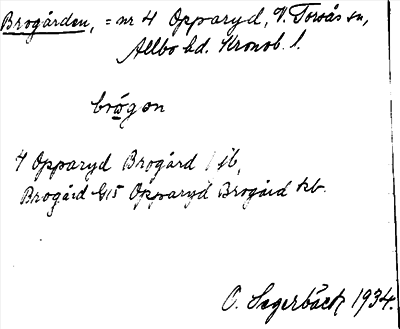 Brogården, = nr 4 Opparyd, V. Torsås sn,
Allbo hd. Kronob. l.
brω̄gon
4 Opparyd Brogård jb,
Brogård G15 Opparyd Brogård kb.
O. Segerbäck 1934.